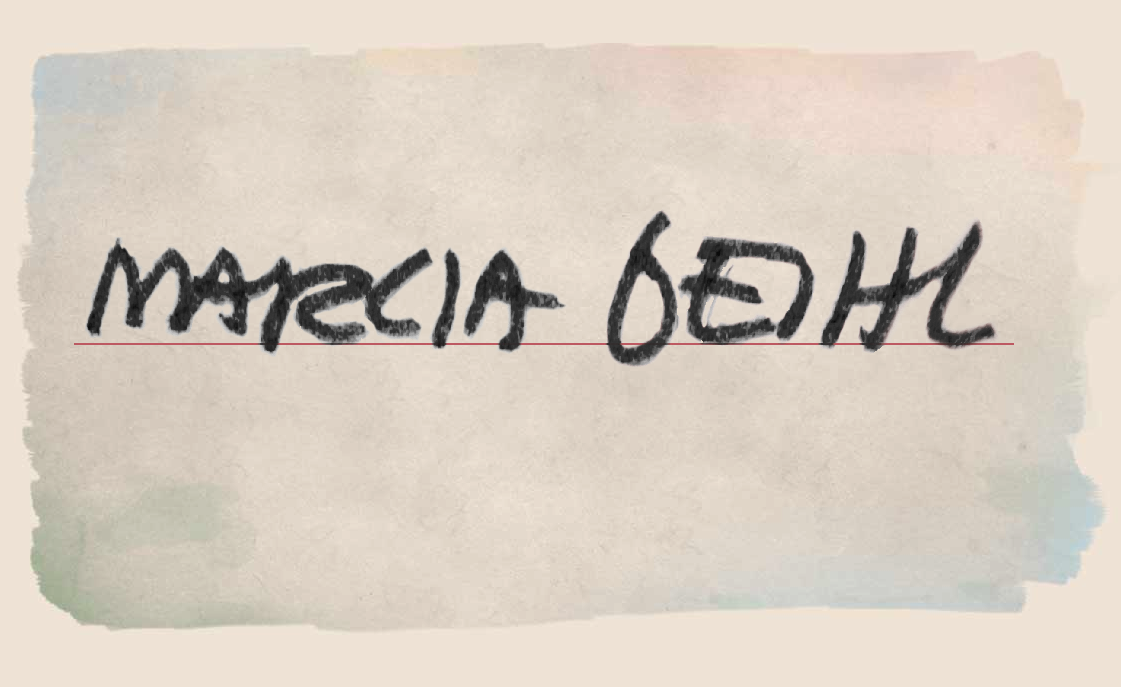 MARCIA GEIHL